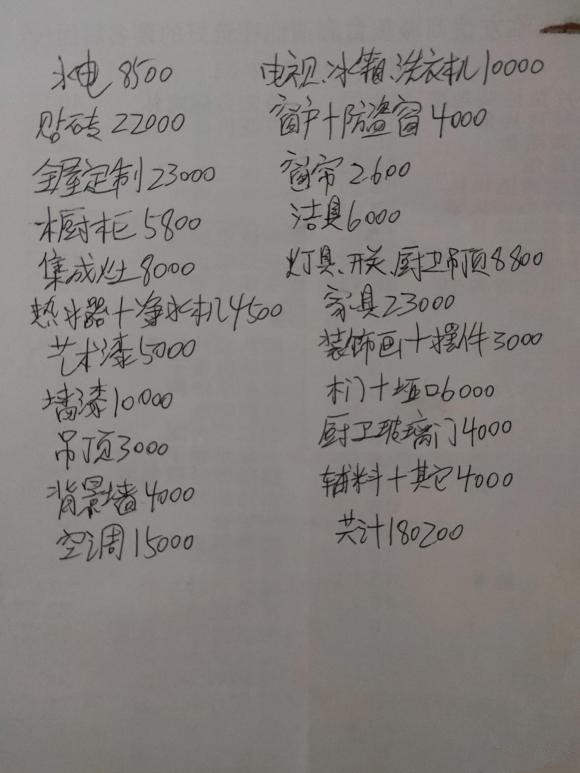 水电 8500
贴砖 22000
全屋定制 23000
橱柜 5800
集成灶 8000
热水器+净水机 4500
艺术漆 5000
墙漆 10000
吊顶 3000
背景墙 4000
空调 15000
电视、冰箱、洗衣机 10000
窗户+防盗窗 4000
窗帘 2600
洁具 6000
灯具、开关、厨卫吊顶 8800
家具 23000
装饰画+摆件 3000
木门+垭口 6000
厨卫玻璃门 4000
辅料+其它 4000
共计 180200